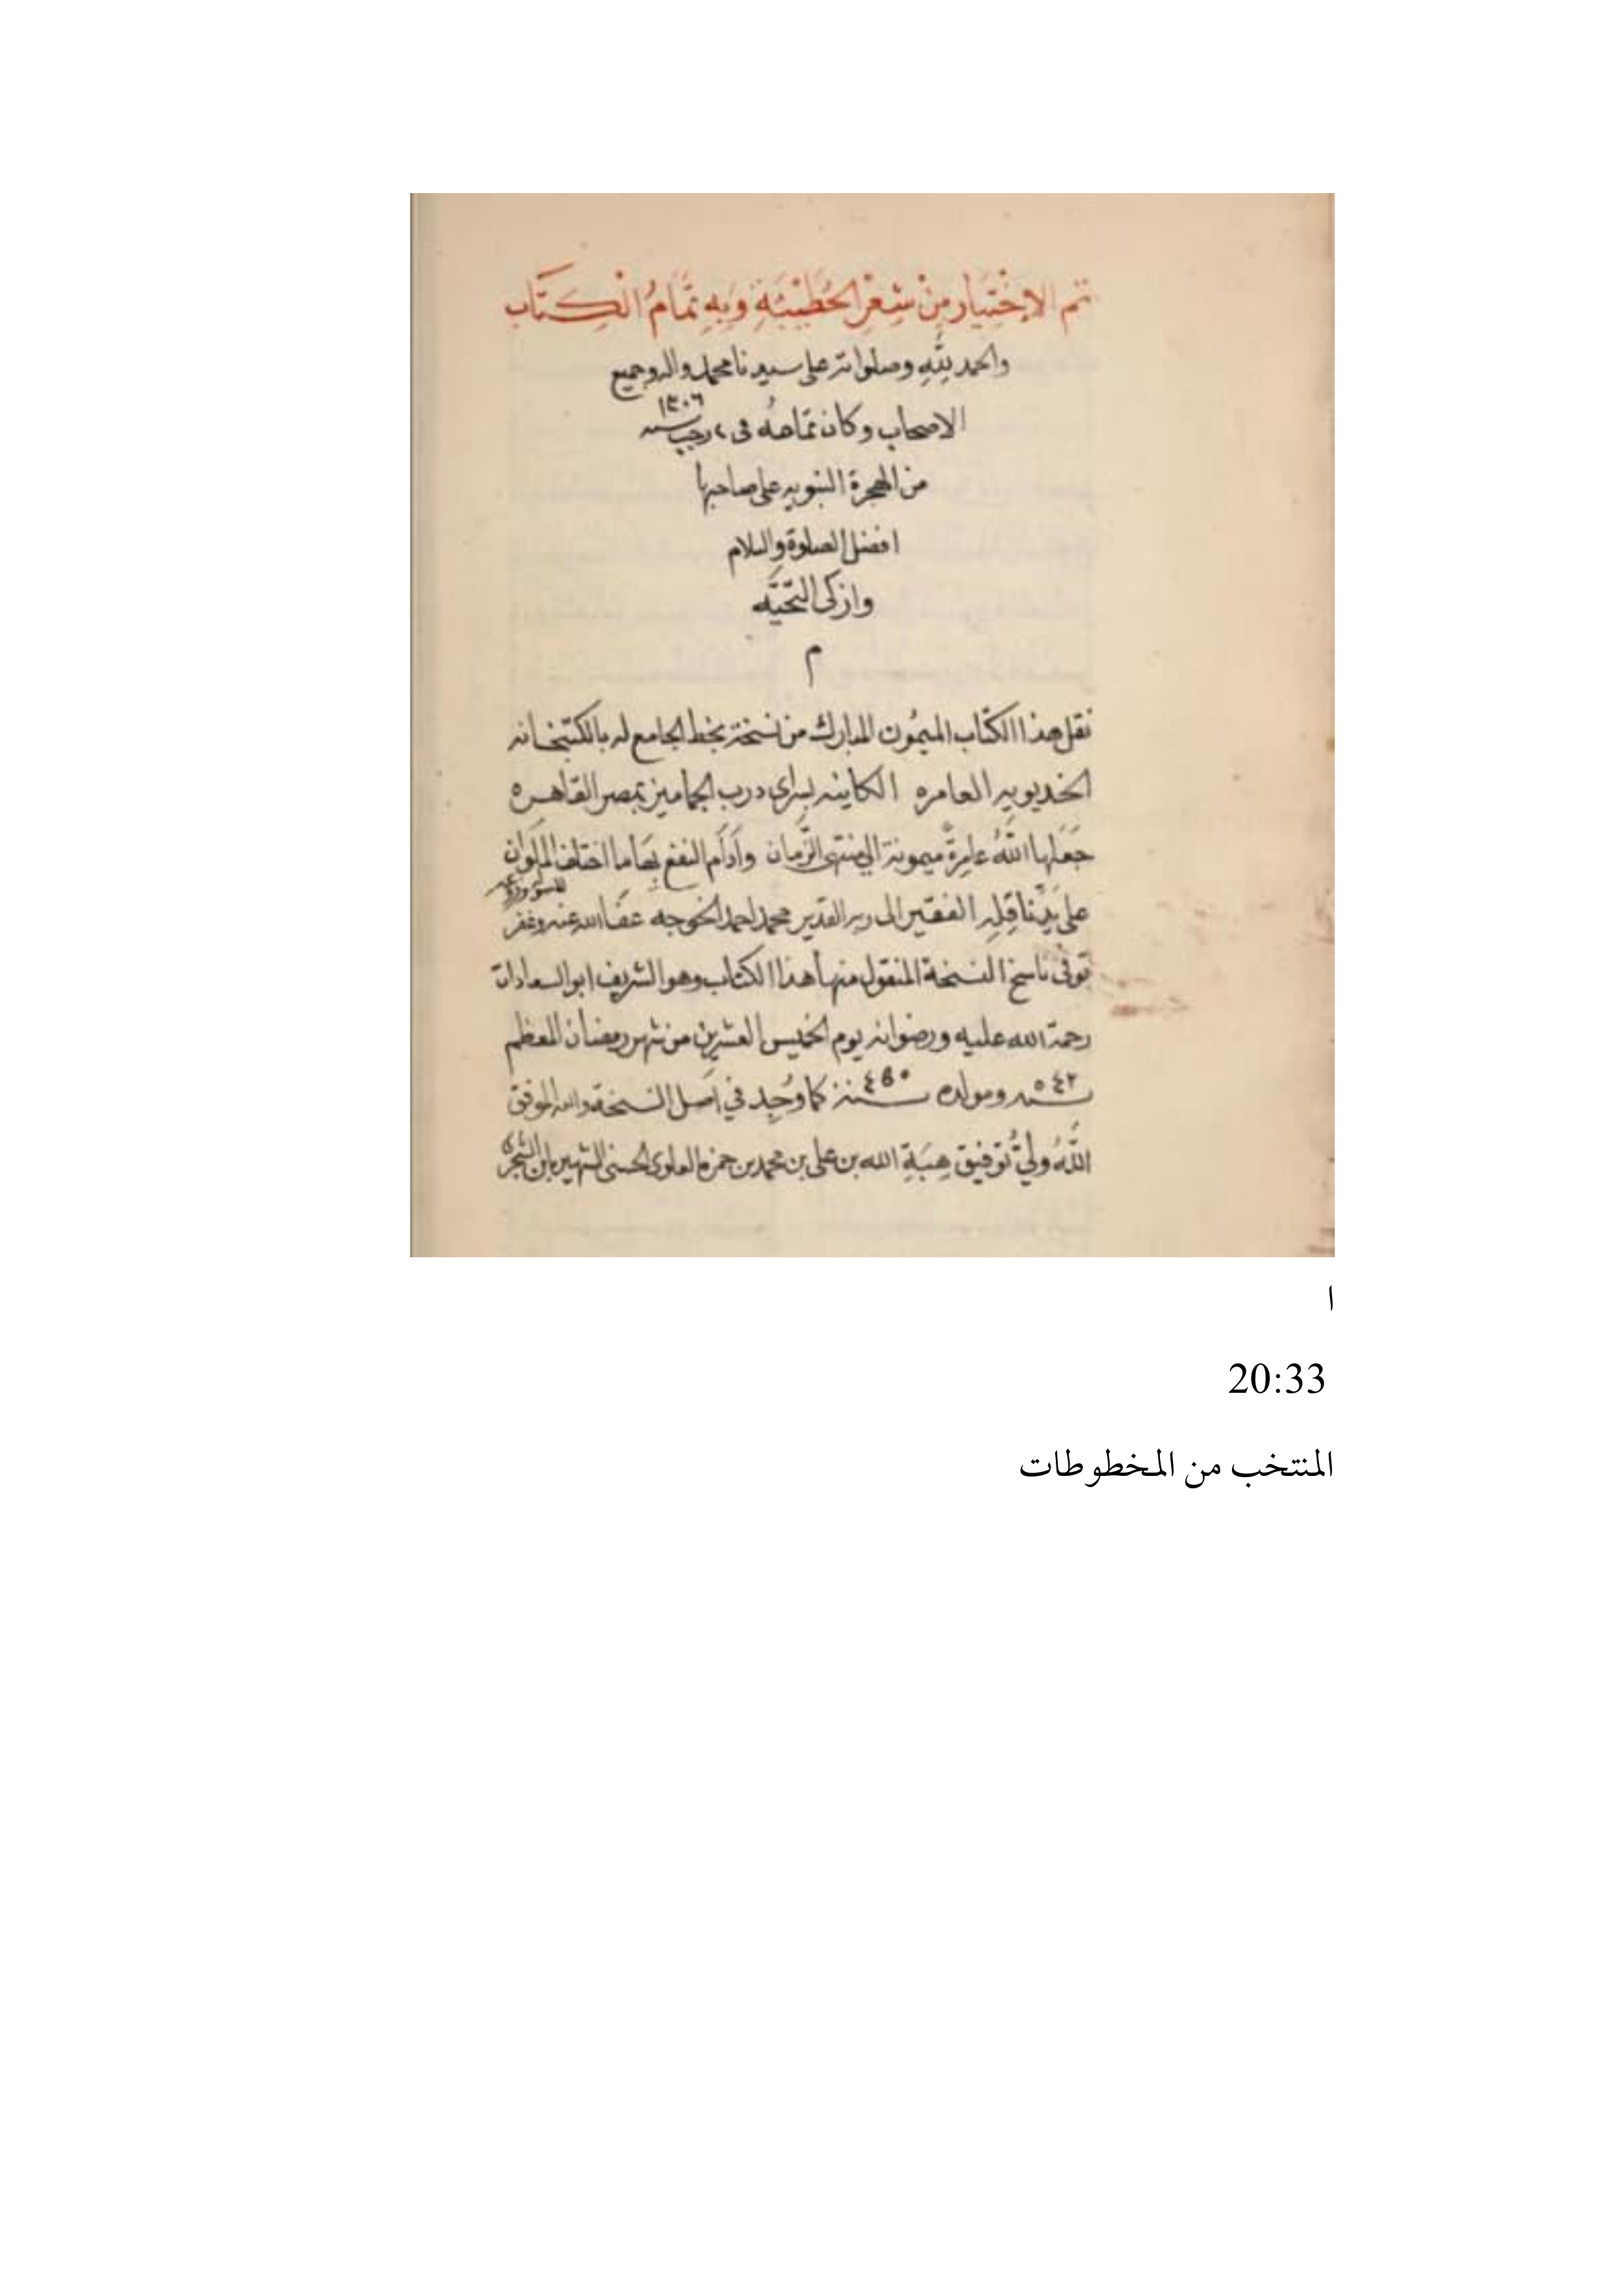 تم الاِخْتِيَار مِنْ شِعْرِ الحُطَيْئَةِ وَبِهِ تَمَامُ الْكِتَاب
والحمد لِلّٰهِ وصلواته على سيدنا محمد واله وجميع
الاصحاب وكان تمامهُ فى ٢ رجب سنه ١٣٠٦
من الهجرة النبويه على صاحبها
افضل الصلوة والسلام
وازكى التحيَّه
م
نقل هذا الكتاب الميمُون المبارك من نسخة بخط الجامع له بالكتبخانه
الخديويه العامره الكاينه بسراى درب الجماميز بمصر القاهره
جَعَلها اللّٰهُ عَامِرةً ميمونة الى منتهى الزَّمان وَاَدَام النفع بِهَا ما اختلف المَلَوان
على يَدِ نَاقِلِهِ الفقير الى ربه القدير محمد احمد الخوجه عفا الله عنه وغفر
توفى ناسخ النسخة المنقول منها هذا الكتاب وهو الشريف ابو السعادات
رحمة الله عليه ورضوانه يوم الخميس العشرين من شهر رمضان المعظم
سنه ٥٤٢ ومولده سنة ٤٥٠ كما وُجِد في اصل النسخة والله الموفق
اللّٰهُ وليُّ تَوفيق هِبَةِ الله بن على بن محمد بن حمزه العلوى الحسنى الشهير بابن الشجرى
ا
20:33
المنتخب من المخطوطات